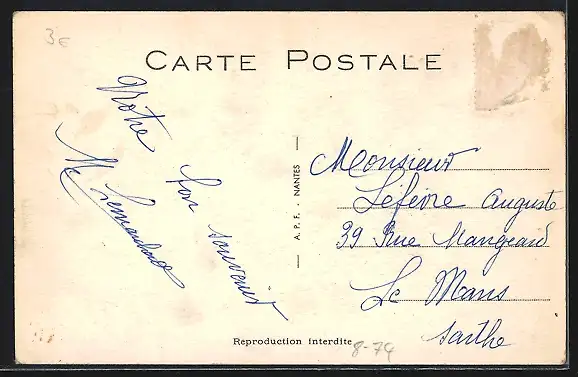 3€
CARTE POSTALE
Votre
bon souvenir
A. P. F. NANTES
Monsieur
Lefèvre Auguste
39 Rue Mangeard
Le Mans
Sarthe
Reproduction interdite
8-74